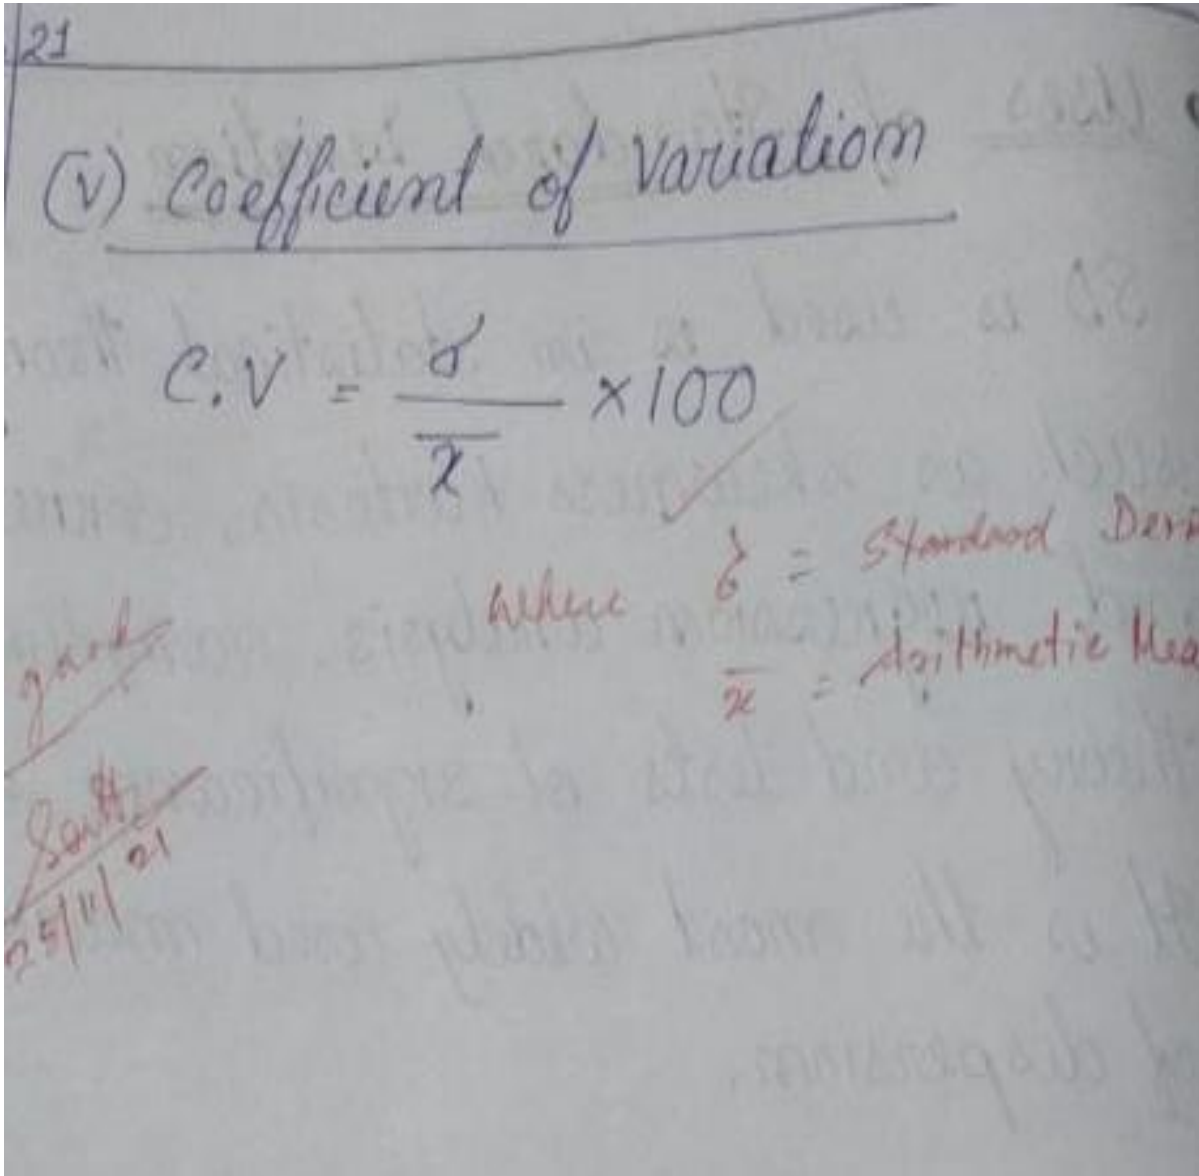 21
(v) Coefficient of Variation
C.V = σ / x̄ × 100
where σ = Standard Devi
x̄ = Arithmetic Mea
good
25/11/21